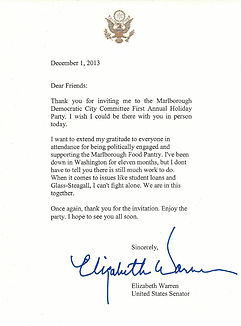 December 1, 2013
Dear Friends:
Thank you for inviting me to the Marlborough
Democratic City Committee First Annual Holiday
Party. I wish I could be there with you in person
today.
I want to extend my gratitude to everyone in
attendance for being politically engaged and
supporting the Marlborough Food Pantry. I've been
down in Washington for eleven months, but I dont
have to tell you there is still much work to do.
When it comes to issues like student loans and
Glass-Steagall, I can't fight alone. We are in this
together.
Once again, thank you for the invitation. Enjoy the
party. I hope to see you all soon.
Sincerely,
Elizabeth Warren
Elizabeth Warren
United States Senator